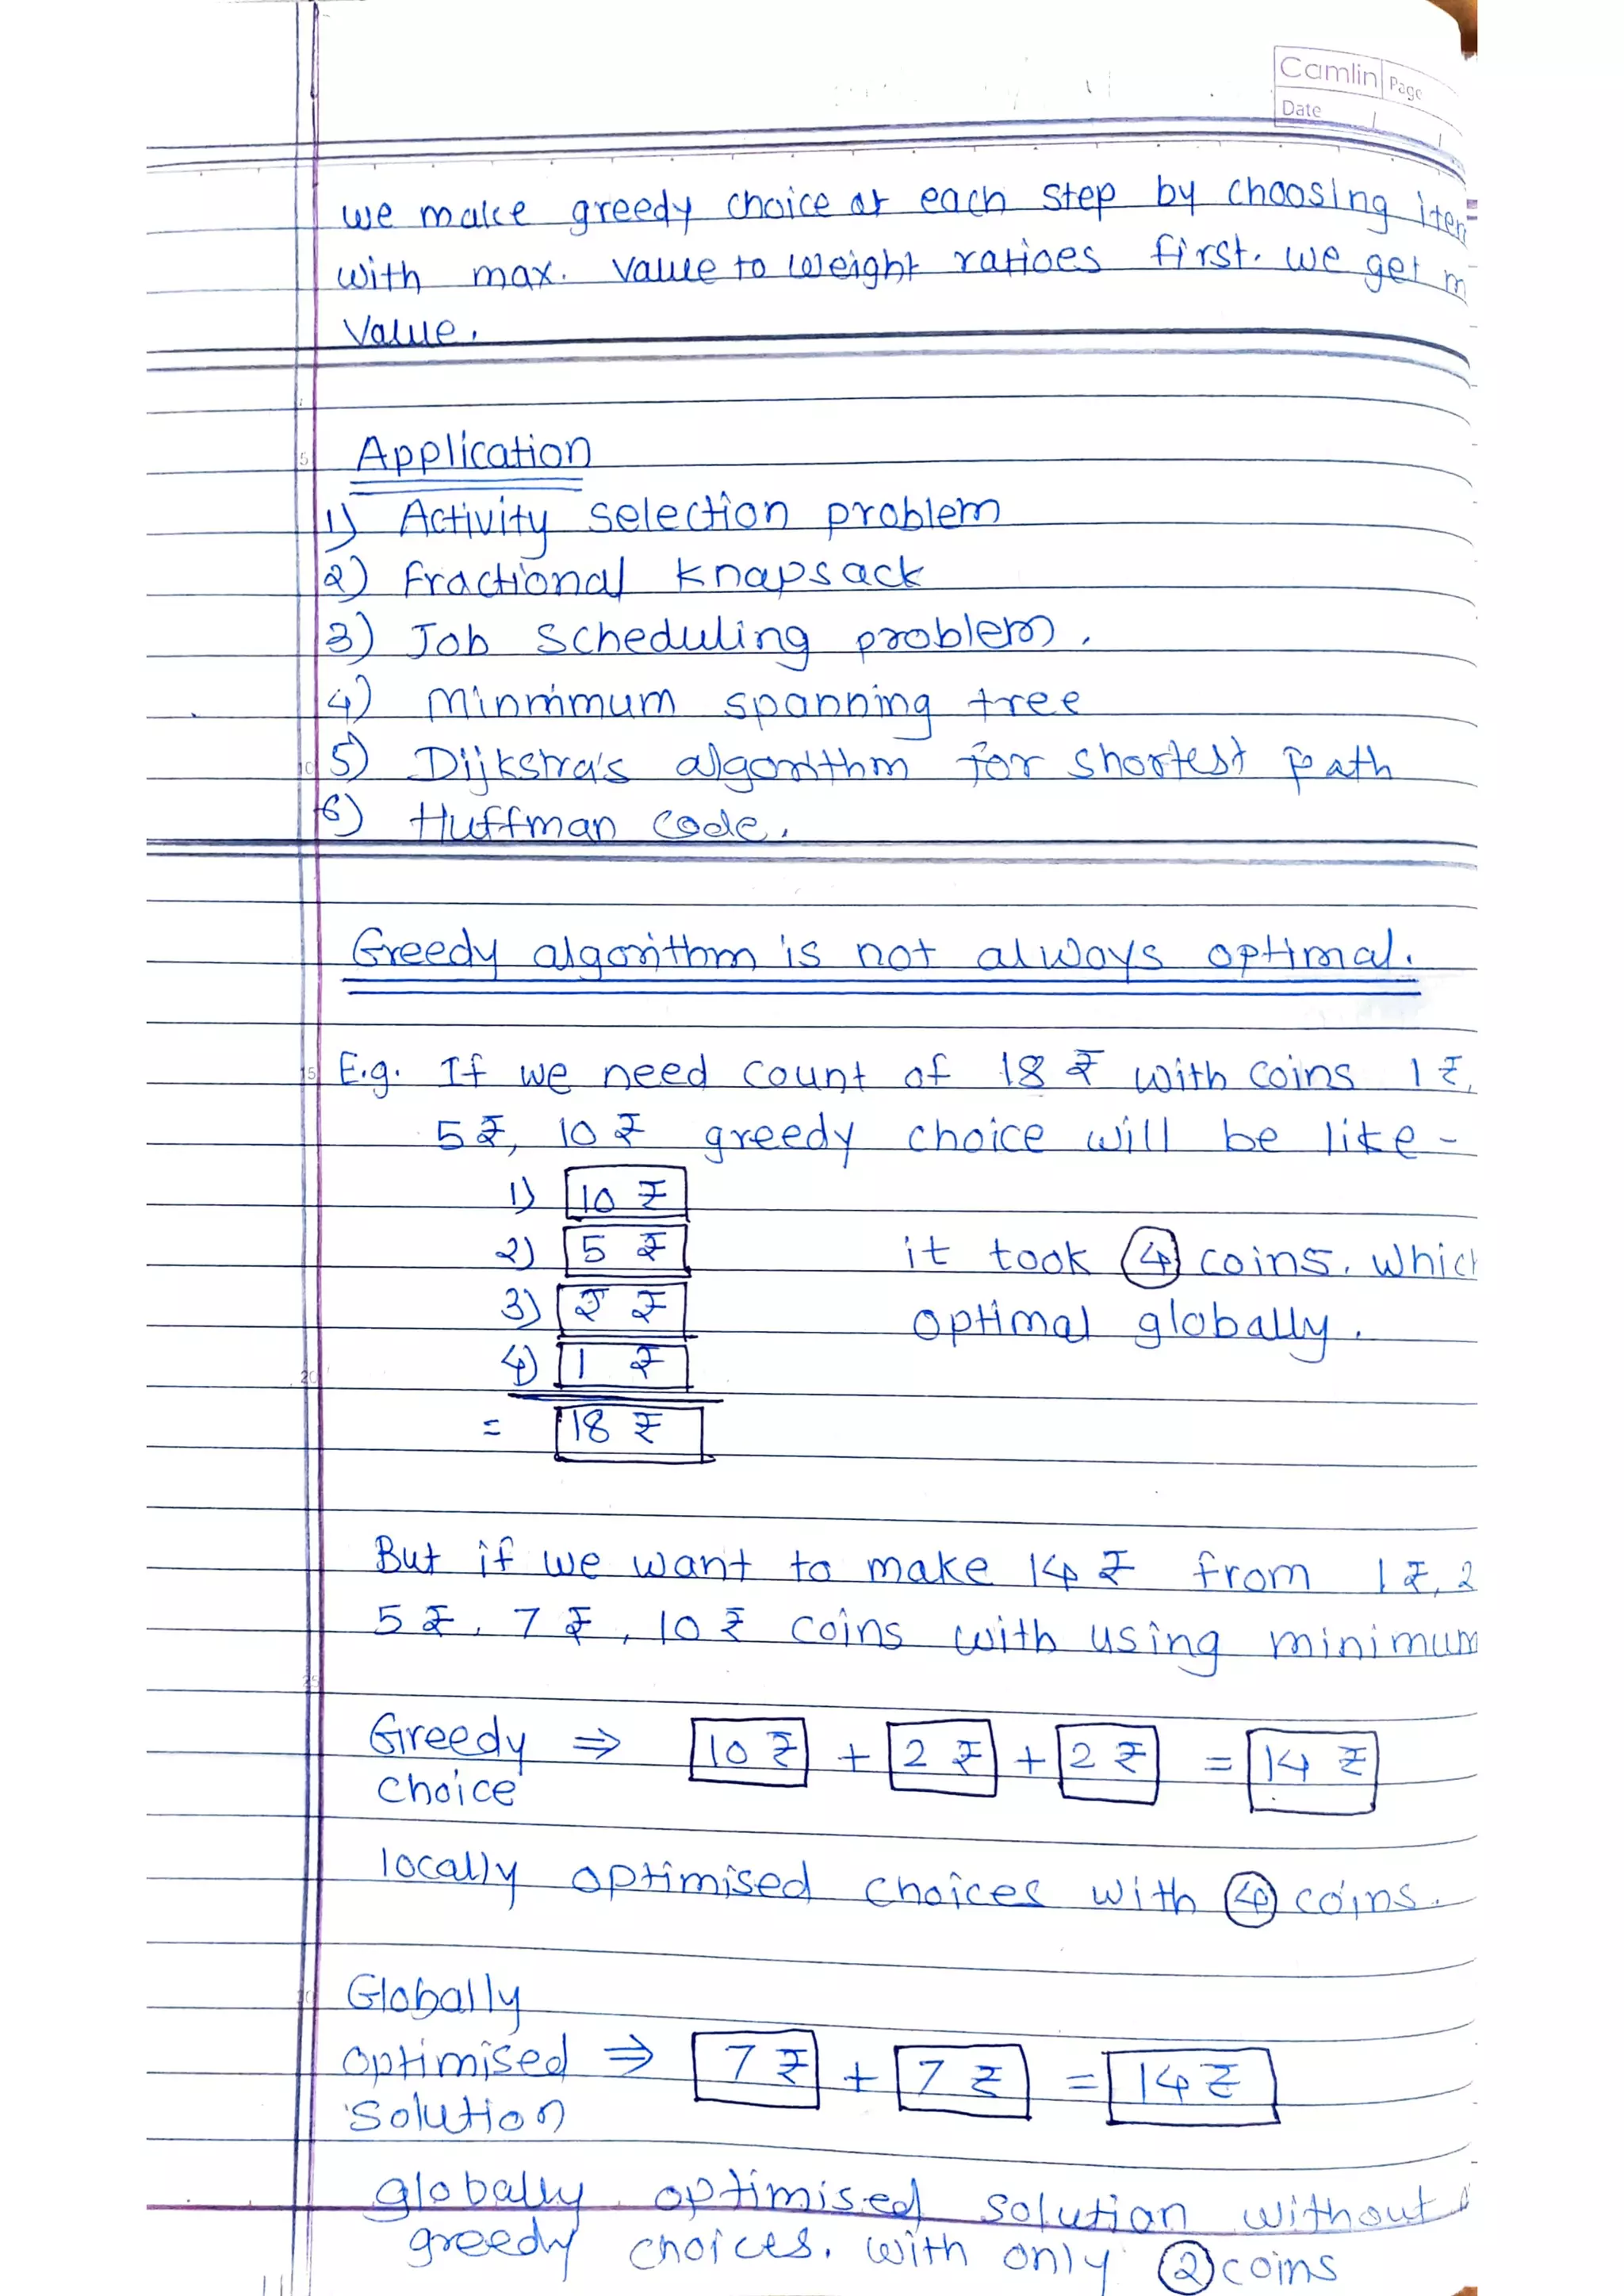 Camlin Page
Date
we make greedy choice at each step by choosing
with max. value to weight ratioes first. we get
value.
Application
1) Activity selection problem
2) Fractional knapsack
3) Job scheduling problem.
4) Minmimum spanning tree
5) Dijkstra's algorithm for shortest path
6) Huffman code.
Greedy algorithm is not always optimal.
E.g. If we need count of 18 ₹ with coins 1 ₹,
5 ₹, 10 ₹ greedy choice will be like -
1) 10 ₹
2) 5 ₹ it took 4 coins. which
3) 2 ₹ optimal globally.
4) 1 ₹
= 18 ₹
But if we want to make 14 ₹ from 1 ₹, 2
5 ₹, 7 ₹, 10 ₹ coins with using minimum
Greedy ⇒ 10 ₹ + 2 ₹ + 2 ₹ = 14 ₹
choice
locally optimised choices with 4 coins.
Globally
optimised ⇒ 7 ₹ + 7 ₹ = 14 ₹
solution
globally optimised solution without
greedy choices. with only 2 coins